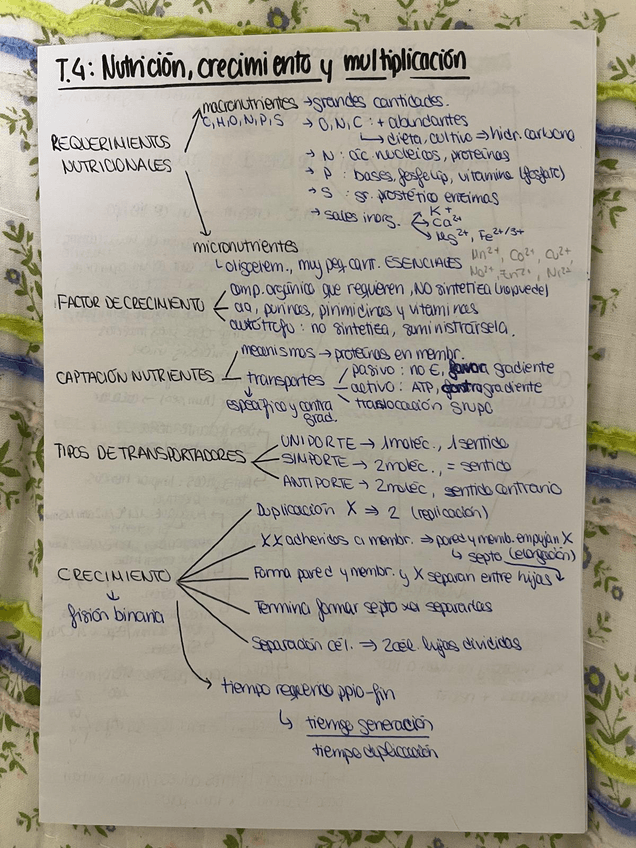 T.4: Nutrición, crecimiento y multiplicación
REQUERIMIENTOS NUTRICIONALES
macronutrientes → grandes cantidades.
C, H, O, N, P, S → O, N, C : + abundantes
↳ dieta, cultivo ⇒ hidr. carbono
→ N : ác. nucleicos, proteínas
→ P : bases, fosfolip, vitamina (fosfato)
→ S : gr. prostético enzimas
→ sales inorg.
K+
Ca2+
Mg2+, Fe2+/3+
micronutrientes
↳ oligoelem., muy peq cant. ESENCIALES
Mn2+, Co2+, Cu2+,
Zn2+, Ni2+
FACTOR DE CRECIMIENTO
comp. orgánico que requieren, NO sintetiza (no puede)
aa, purinas, pirimidinas y vitaminas
autótrofo : no sintetiza, suministrársela.
CAPTACIÓN NUTRIENTES
mecanismos → proteínas en membr.
transportes
específico y contra grad.
pasivo : no E, favor gradiente
activo : ATP, contra gradiente
translocación grupo
TIPOS DE TRANSPORTADORES
UNIPORTE → 1 moléc., 1 sentido
SIMPORTE → 2 moléc., = sentido
ANTIPORTE → 2 moléc, sentido contrario
CRECIMIENTO
↓
fisión binaria
Duplicación X ⇒ 2 (replicación)
XX adheridos a membr. ⇒ pared y memb. empujan X
↳ septo (elongación)
Forma pared y membr. y X separan entre hijas
Termina formar septo xa separarlas
Separación cél. ⇒ 2 cél. hijas divididas
tiempo requerido ppio-fin
↳ tiempo generación
tiempo duplicación